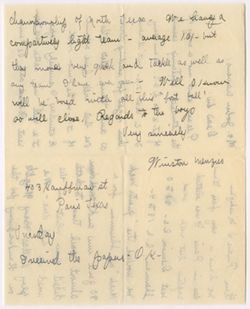 championship of North Texas. We have a
comparatively light team - average 161 - but
they moved very quick and tackle as well as
any team I have ever seen. Well I know
will be bored with all this "foot ball"
so will close. Regards to the boys
Very sincerely
Winston Menzies
403 Kauffman st
Paris Texas
Tuesday
I received the papers - O.K. -